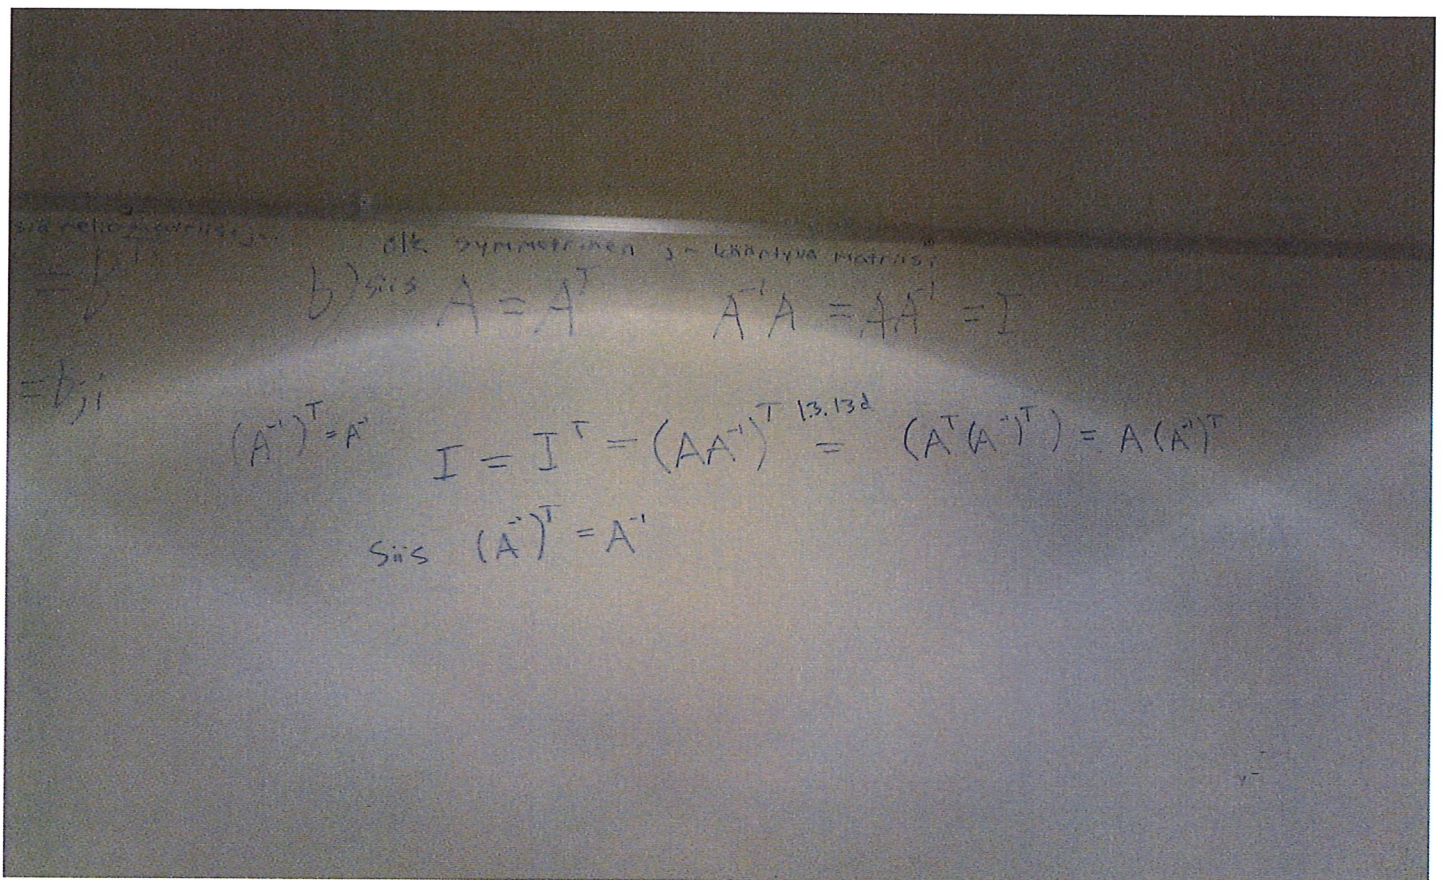 olk symmetrinen ja kääntyvä matriisi
= b
b) siis A = Aᵀ A⁻¹A = AA⁻¹ = I
= bji
(A⁻¹)ᵀ = A⁻¹
I = Iᵀ = (AA⁻¹)ᵀ 1.3.13d = (Aᵀ(A⁻¹)ᵀ) = A(A⁻¹)ᵀ
Siis (A⁻¹)ᵀ = A⁻¹